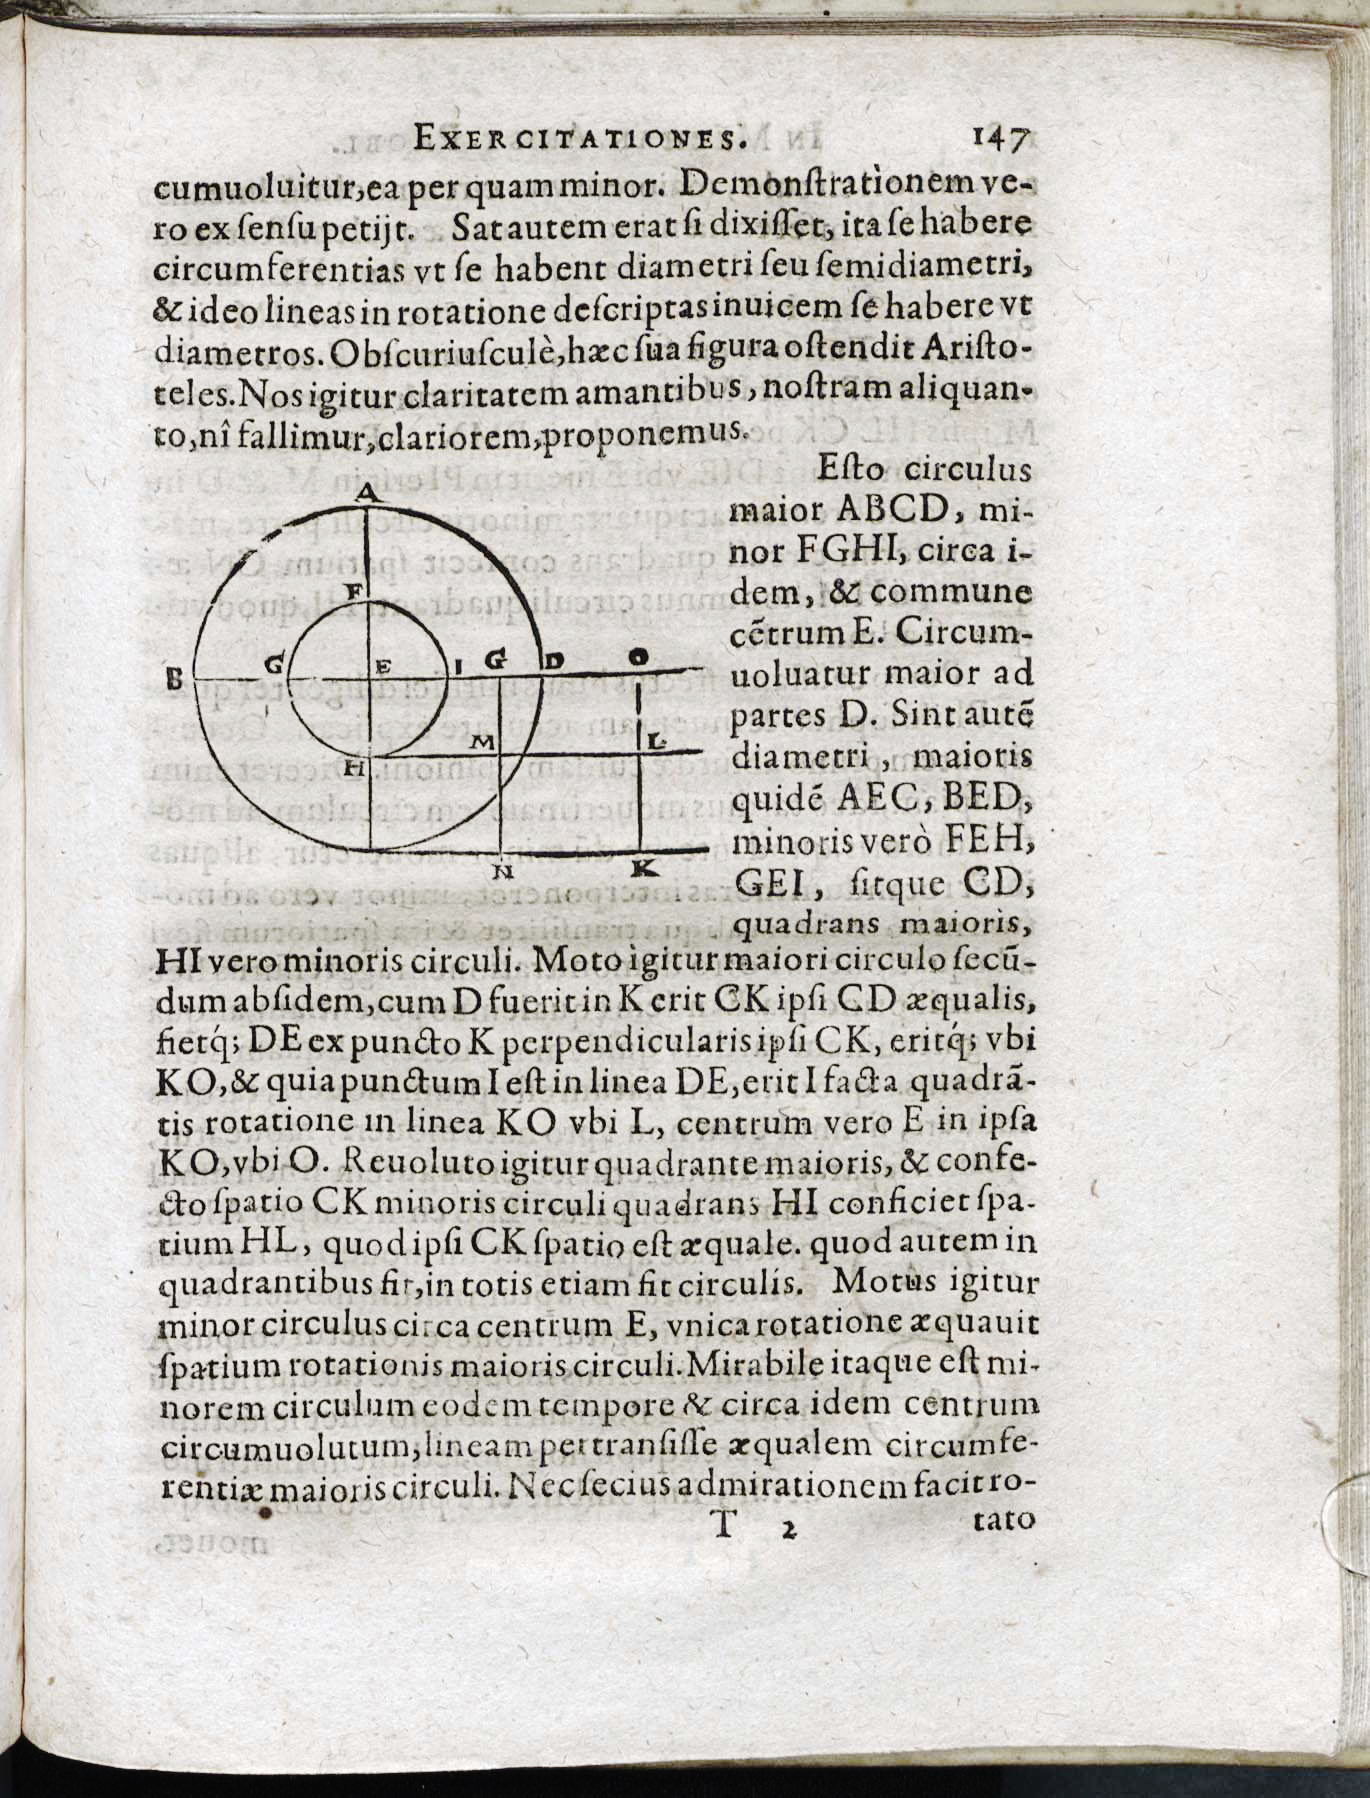 EXERCITATIONES. 147
cumuoluitur, ea per quam minor. Demonſtrationem ve-
ro ex ſenſu petijt. Sat autem erat ſi dixiſſet, ita ſe habere
circumferentias vt ſe habent diametri ſeu ſemidiametri,
& ideo lineas in rotatione deſcriptas inuicem ſe habere vt
diametros. Obſcuriuſculè, hæc ſua figura oſtendit Ariſto-
teles. Nos igitur claritatem amantibus, noſtram aliquan-
to, nî fallimur, clariorem, proponemus.
Eſto circulus
maior ABCD, mi-
nor FGHI, circa i-
dem, & commune
cẽtrum E. Circum-
uoluatur maior ad
partes D. Sint autẽ
diametri, maioris
quidẽ AEC, BED,
minoris verò FEH,
GEI, ſitque CD,
quadrans maioris,
A
F
B G E I G D O
M L
H
N K
HI vero minoris circuli. Moto igitur maiori circulo ſecũ-
dum abſidem, cum D fuerit in K erit CK ipſi CD æqualis,
fietq́; DE ex puncto K perpendicularis ipſi CK, eritq́; vbi
KO, & quia punctum I eſt in linea DE, erit I facta quadrã-
tis rotatione in linea KO vbi L, centrum vero E in ipſa
KO, vbi O. Reuoluto igitur quadrante maioris, & confe-
cto ſpatio CK minoris circuli quadrans HI conficiet ſpa-
tium HL, quod ipſi CK ſpatio eſt æquale. quod autem in
quadrantibus fit, in totis etiam fit circulis. Motus igitur
minor circulus circa centrum E, vnica rotatione æquauit
ſpatium rotationis maioris circuli. Mirabile itaque eſt mi-
norem circulum eodem tempore & circa idem centrum
circumuolutum, lineam pertranſiſſe æqualem circumfe-
rentiæ maioris circuli. Nec ſecius admirationem facit ro-
T 2 tato